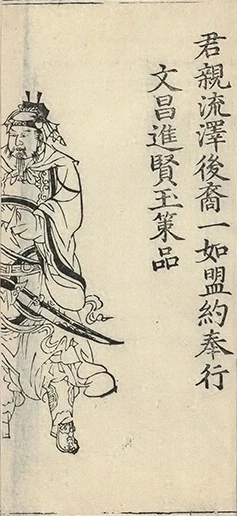 君親流澤後裔一如盟約奉行
文昌進賢玉策品